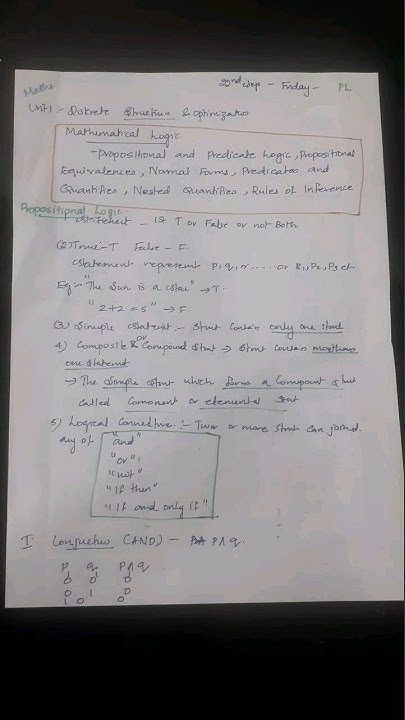 Maths
22nd Sep - Friday - PL
Unit 1 :- Diskrete Structure & optimization
Mathematical Logic.
- Propositional and Predicate Logic, Propositional
Equivalences, Normal Forms, Predicates and
Quantifies, Nested Quantifies, Rules of Inference
Propositional Logic:
Statement - Is T or False or not Both
(2) True - T False - F.
Statement represent P, q, r ..... or P1, P2, P3 et.
Eg:- "The sun is a star" → T.
"2+2 = 5" → F.
(3) Simple Statemt :- Stmt contain only one stmt
4) Composite & or Compound Stmt → Stmt contain morethan
one statemt
→ The simple stmt which forms a Compount stmt
called Comonent or elemental stmt
5) Logical Connective :- Two or more stmt can joind.
any of "and"
"or"
"not"
"If then"
"If and only if"
I Conjuction (AND) - P∧q.
P q P∧q
0 0 0
0 1 0
1 0 0